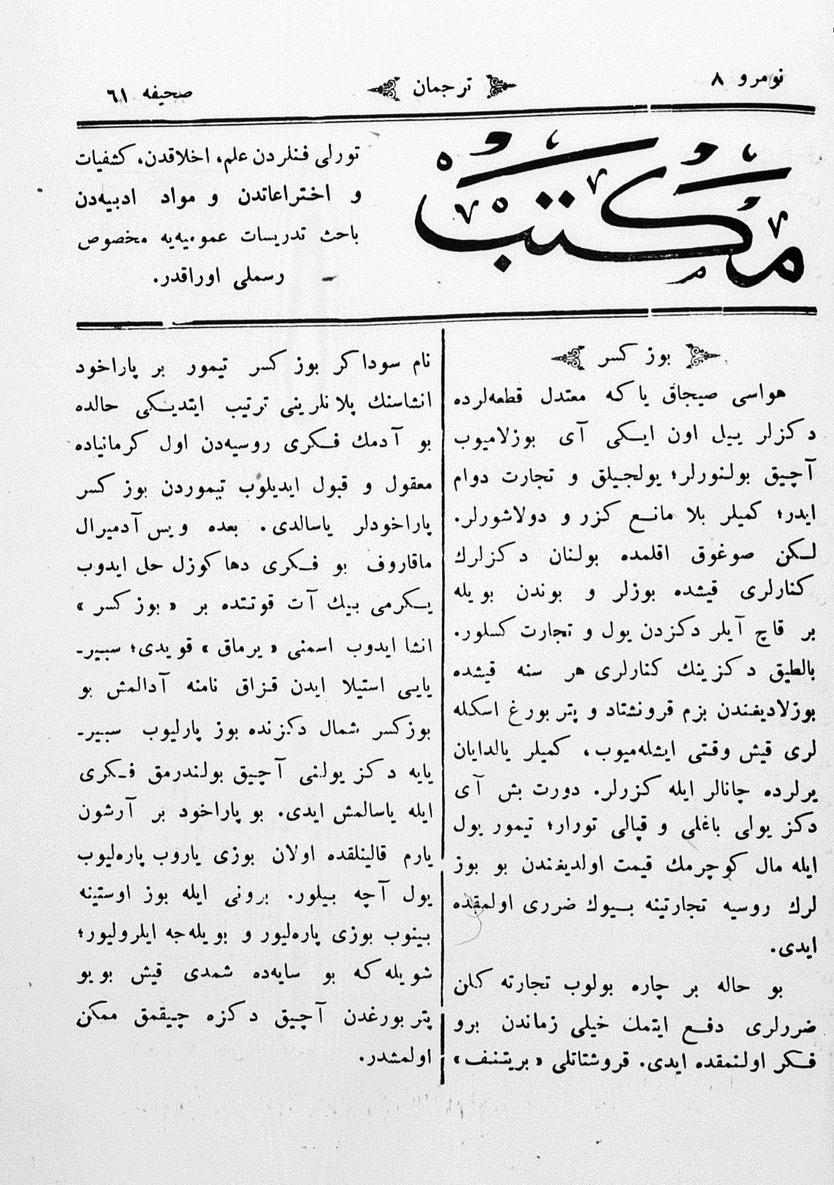 نومرو ٨
ترجمان
صحیفه ٦١
مكتب
تورلی فنلردن علم، اخلاقدن، كشفیات
و اختراعاتدن و مواد ادبیه‌دن
باحث تدریسات عمومیه‌یه مخصوص
رسملی اوراقدر.
بوز كسر
هواسی صیجاق یاكه معتدل قطعه‌لرده
دكزلر ییل اون ایكی آی بوزلامیوب
آچیق بولنورلر؛ یولجیلق و تجارت دوام
ایدر؛ كمیلر بلا مانع كزر و دولاشورلر.
لكن صوغوق اقلمده بولنان دكزلرك
كنارلری قیشده بوزلر و بوندن بویله
بر قاچ آیلر دكزدن یول و تجارت كسلور.
بالطیق دكزینك كنارلری هر سنه قیشده
بوزلادیغندن بزم قرونشتاد و پتربورغ اسكله
لری قیش وقتی ایشله‌میوب، كمیلر یالدایان
یرلرده چانالر ایله كزرلر. دورت بش آی
دكز یولی باغلی و قپالی تورار؛ تیمور یول
ایله مال كوچرمك قیمت اولدیغندن بو بوز
لرك روسیه تجارتینه بیوك ضرری اولمقده
ایدی.
بو حاله بر چاره بولوب تجارته كلن
ضررلری دفع ایتمك خیلی زماندن برو
فكر اولنمقده ایدی. قروشتاتلی «بریتنف»
نام سوداكر بوز كسر تیمور بر پاراخود
انشاسنك پلانلرینی ترتیب ایتدیكی حالده
بو آدمك فكری روسیه‌دن اول كرمانیاده
معقول و قبول ایدیلوب تیموردن بوز كسر
پاراخودلر یاسالدی. بعده ویس آدمیرال
ماقاروف بو فكری دها كوزل حل ایدوب
یكرمی بیك آت قوتنده بر «بوز كسر»
انشا ایدوب اسمنی «یرماق» قویدی؛ سبیر-
یایی استیلا ایدن قزاق نامنه آدالمش بو
بوزكسر شمال دكزنده بوز پارلیوب سبیر-
یایه دكز یولنی آچیق بولندرمق فكری
ایله یاسالمش ایدی. بو پاراخود بر آرشون
یارم قالینلقده اولان بوزی یاروب پاره‌لیوب
یول آچه بیلور. برونی ایله بوز اوستینه
بینوب بوزی پاره‌لیور و بویله‌جه ایلرولیور؛
شویله‌كه بو سایه‌ده شمدی قیش بویو
پتربورغدن آچیق دكزه چیقمق ممكن
اولمشدر.